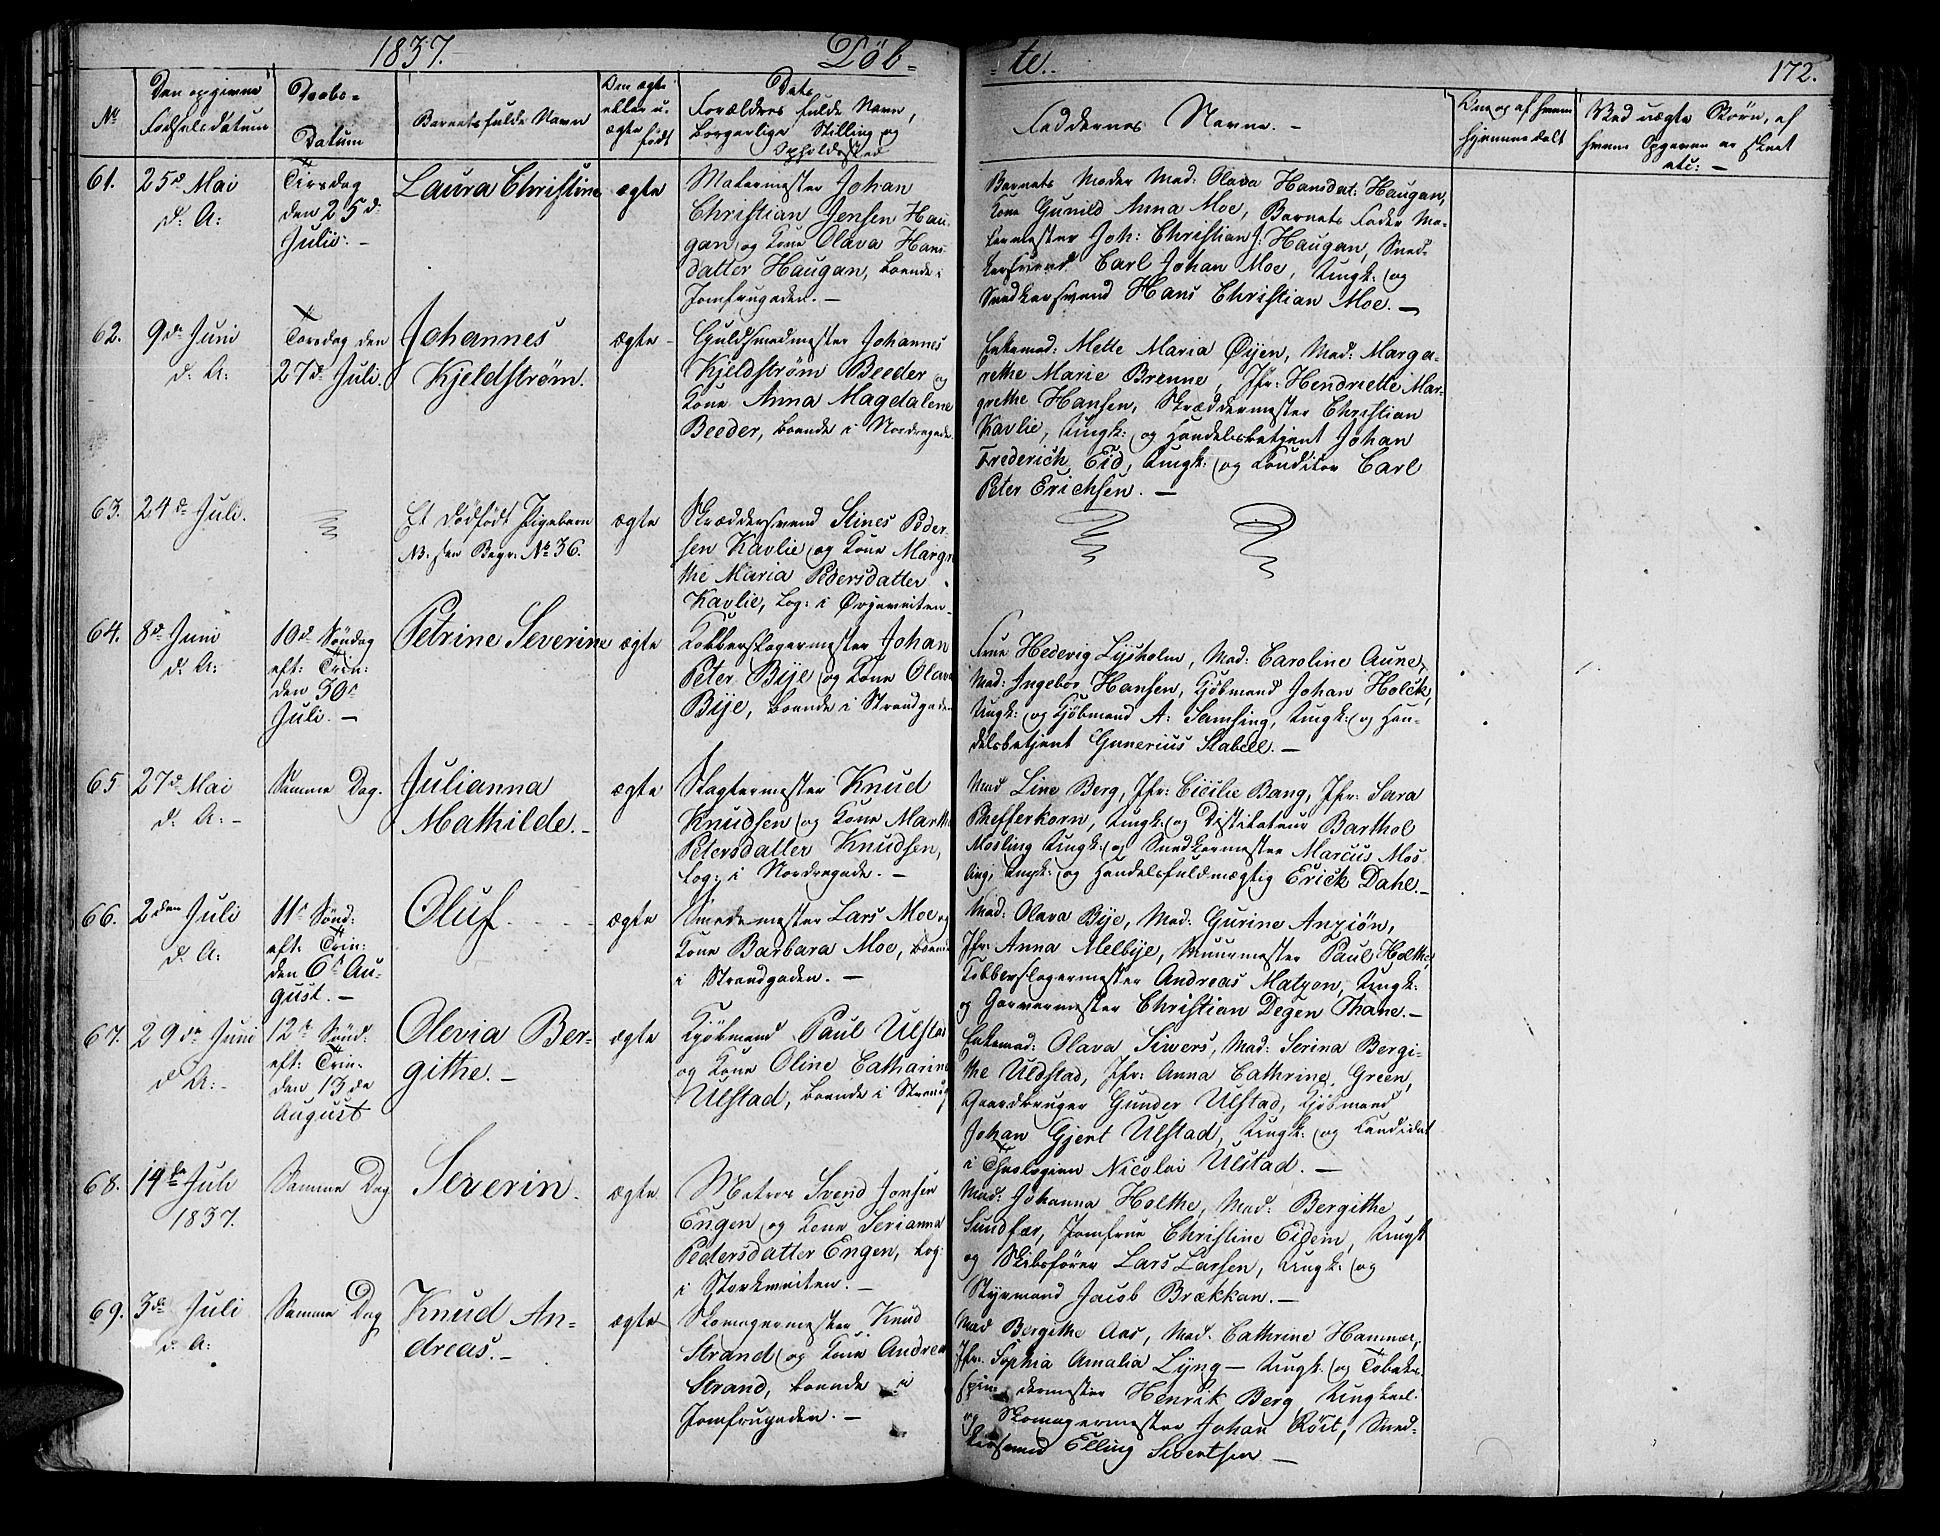 1837.
Döb-
-te.-
172.
No
Den opgivne
Fødselsdatum
Daabs-
Datum
Barnets fulde Navn
Om ægte
eller u-
ægte
født
Dets
Forældres fulde Navn,
borgerlige Stilling og
Opholdssted
Faddernes Navne. -
Om og af hvem
hjemmedøbt
Ved uægte Børn, af
hvem Opgaven er skeet
etc: -
61.
25de Mai
d: A:
Tirsdag
den 25d:
Julii: -
Laura Christine
ægte
Malermester Johan
Christian Jensen Hau-
gan og Kone Olava Hans
datter Haugan, boende i
Jomfrugaden. -
Barnets Moder Mad: Olava Hansdat: Haugan,
Kone Gunild Anna Moe, Barnets Fader Ma-
lermester Joh: Christian J: Haugan, Sned-
kersvend Carl Johan Moe, Ungk: og
Snedkersvend Hans Christian Moe. -
62.
9de Juni
d: A:
Torsdag den
27d Juli.
Johannes
Kjeldstrøm.
ægte -
Guldsmedmester Johannes
Kjeldstrøm Beeder og
Kone Anna Magdalene
Beeder, boende i Nordregade.
Enkemad: Mette Maria Øijen, Mad: Marga-
rethe Marie Brenne, Jfr: Hendriette Mar-
grethe Hansen, Skræddermester Christian
Kavlie, Ungk: og Handelsbetjent Johan
Frederich Eid, Ungk: og Conditor Carl
Peter Erichsen. -
63.
24de Juli.
Et dødfødt Pigebarn
NB. sen Begr: No 36.
ægte
Skræddersvend Stines Peder-
sen Kavlie og Kone Margre
the Maria Pedersdatter
Kavlie, Log: i Ørjaveiten.
64.
8de Juni
d: A:
10de Søndag
eft: Trin:
den 30te
Juli. -
Petrine Severine
ægte
Kobberslagermester Johan
Peter Bije og Kone Olava
Bije, boende i Strandgaden
Frue Hedevig Lysholm, Mad: Caroline Aune,
Mad: Ingebor Hansen, Kjøbmand Johan Holck,
Ungk: og Kjøbmand A: Samsing, Ungk: og Han-
delsbetjent Gunerius Stabell. -
65
27d Mai
d: A: -
Samme Dag.
Julianna
Mathilde. -
ægte
Slagtermester Knud
Knudsen og Kone Marthe
Petersdatter Knudsen,
Log: i Nordregade. -
Mad Line Berg, Jfr: Cicilie Bang, Jfr: Sara
Phefferkorn, Ungk: og Distilateur Barthol
Mosling Ungk: og Snedkermester Marcus Mos
ling, Ungk: og Handelsfuldmægtig Erick Dahl. -
66.
2den Juli
d: A:
11te Sønd:
eft: Trin:
den 6te Au-
gust. -
Oluf.
ægte
Smedemester Lars Moe og
Kone Barbara Moe, boende
i Strandgaden. -
Mad: Olava Bije, Mad: Gurine Anziön,
Jfr: Anna Melbije, Muurmester Paul Holthe,
Kobberslagermester Andreas Matzon, Ungk:
og Garvermester Christian Degen Thane. -
67.
29de Juni
d A: -
12te Sønd:
eft: Trin:
den 13de
August
Olevia Ber-
githe. -
ægte
Kjøbmand Paul Ulstad
og Kone Oline Catharine
Ulstad, boende i Strandg
Enkemad: Olava Siwers, Mad: Serina Bergi-
the Uldstad, Jfr: Anna Cathrine Green,
Gaardbruger Gunder Ulstad, Kjøbmand
Johan Gjert Ulstad, Ungk: og Candidat
i Theologien Nicolai Ulstad. -
68.
14de Juli
1837.
Samme Dag
Severin.
ægte
Matros Svend Jonsen
Engen og Kone Serianna
Pedersdatter Engen, Log:
i Storkveiten. -
Mad: Johanna Holthe, Mad: Bergithe
Sundfær, Jomfrue Christine Eidem, Ungk
og Skibsfører Lars Larsen, Ungk: og
Styrmand Jacob Brækkan. -
69.
3de Juli
d: A:
Samme Dag
Knud An-
dreas. -
ægte
Skomagermester Knud
Strand og Kone Andrea
Strand, boende i
Jomfrugaden. -
Mad Bergithe Aas, Mad. Cathrine Hammer,
Jfr: Sophia Amalia Lyng - Ungk. og Tobaks-
spindermester Henrik Berg Ungkarl.
og Skomagermester Johan Röst, Sned-
kersvend Elling Sivertsen -